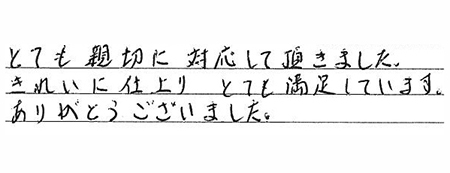 とても親切に対応して頂きました。
きれいに仕上り とても満足しています。
ありがとうございました。